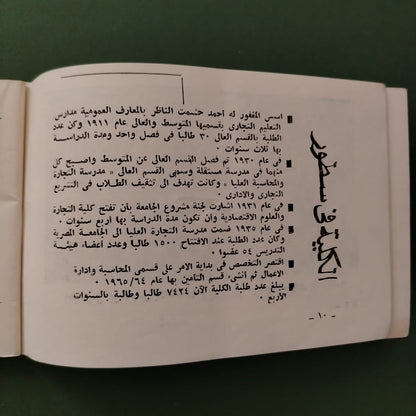 الكلية في سطور
اسس المغفور له احمد حشمت الناظر بالمعارف العمومية مدارس
التعليم التجارى بقسميها المتوسط والعالى عام ١٩١١ وكان عدد
الطلبة بالقسم العالى ٣٠ طالبا فى فصل واحد ومدة الدراسة
بها ثلاث سنوات ٠
فى عام ١٩٣٠ تم فصل القسم العالى عن المتوسط واصبح كل
منهما فى مدرسة مستقلة وسمى القسم العالى « مدرسة التجارة
والمحاسبة العليا » وكانت تهدف الى تثقيف الطلاب فى التشريع
التجارى والادارى ٠
فى عام ١٩٣١ اشارت لجنة مشروع الجامعة بأن تفتح كلية التجارة
والعلوم الاقتصادية وان تكون مدة الدراسة بها أربع سنوات ٠
فى عام ١٩٣٥ ضمت مدرسة التجارة العليا الى الجامعة المصرية
وكان عدد الطلبة عند الافتتاح ١٥٠٠ طالبا وعدد أعضاء هيئة
التدريس ٥٤ عضوا ٠
اقتصر التخصص فى بداية الامر على قسمى المحاسبة وادارة
الاعمال ثم أنشىء قسم التأمين بها عام ١٩٦٥/٦٤ ٠
يبلغ عدد طلبة الكلية الآن ٧٤٢٤ طالبا وطالبة بالسنوات
الأربع ٠
- ١٠ -